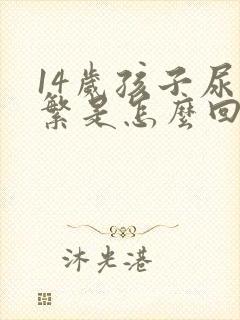 14歲孩子尿
繁是怎麼回
沐光港